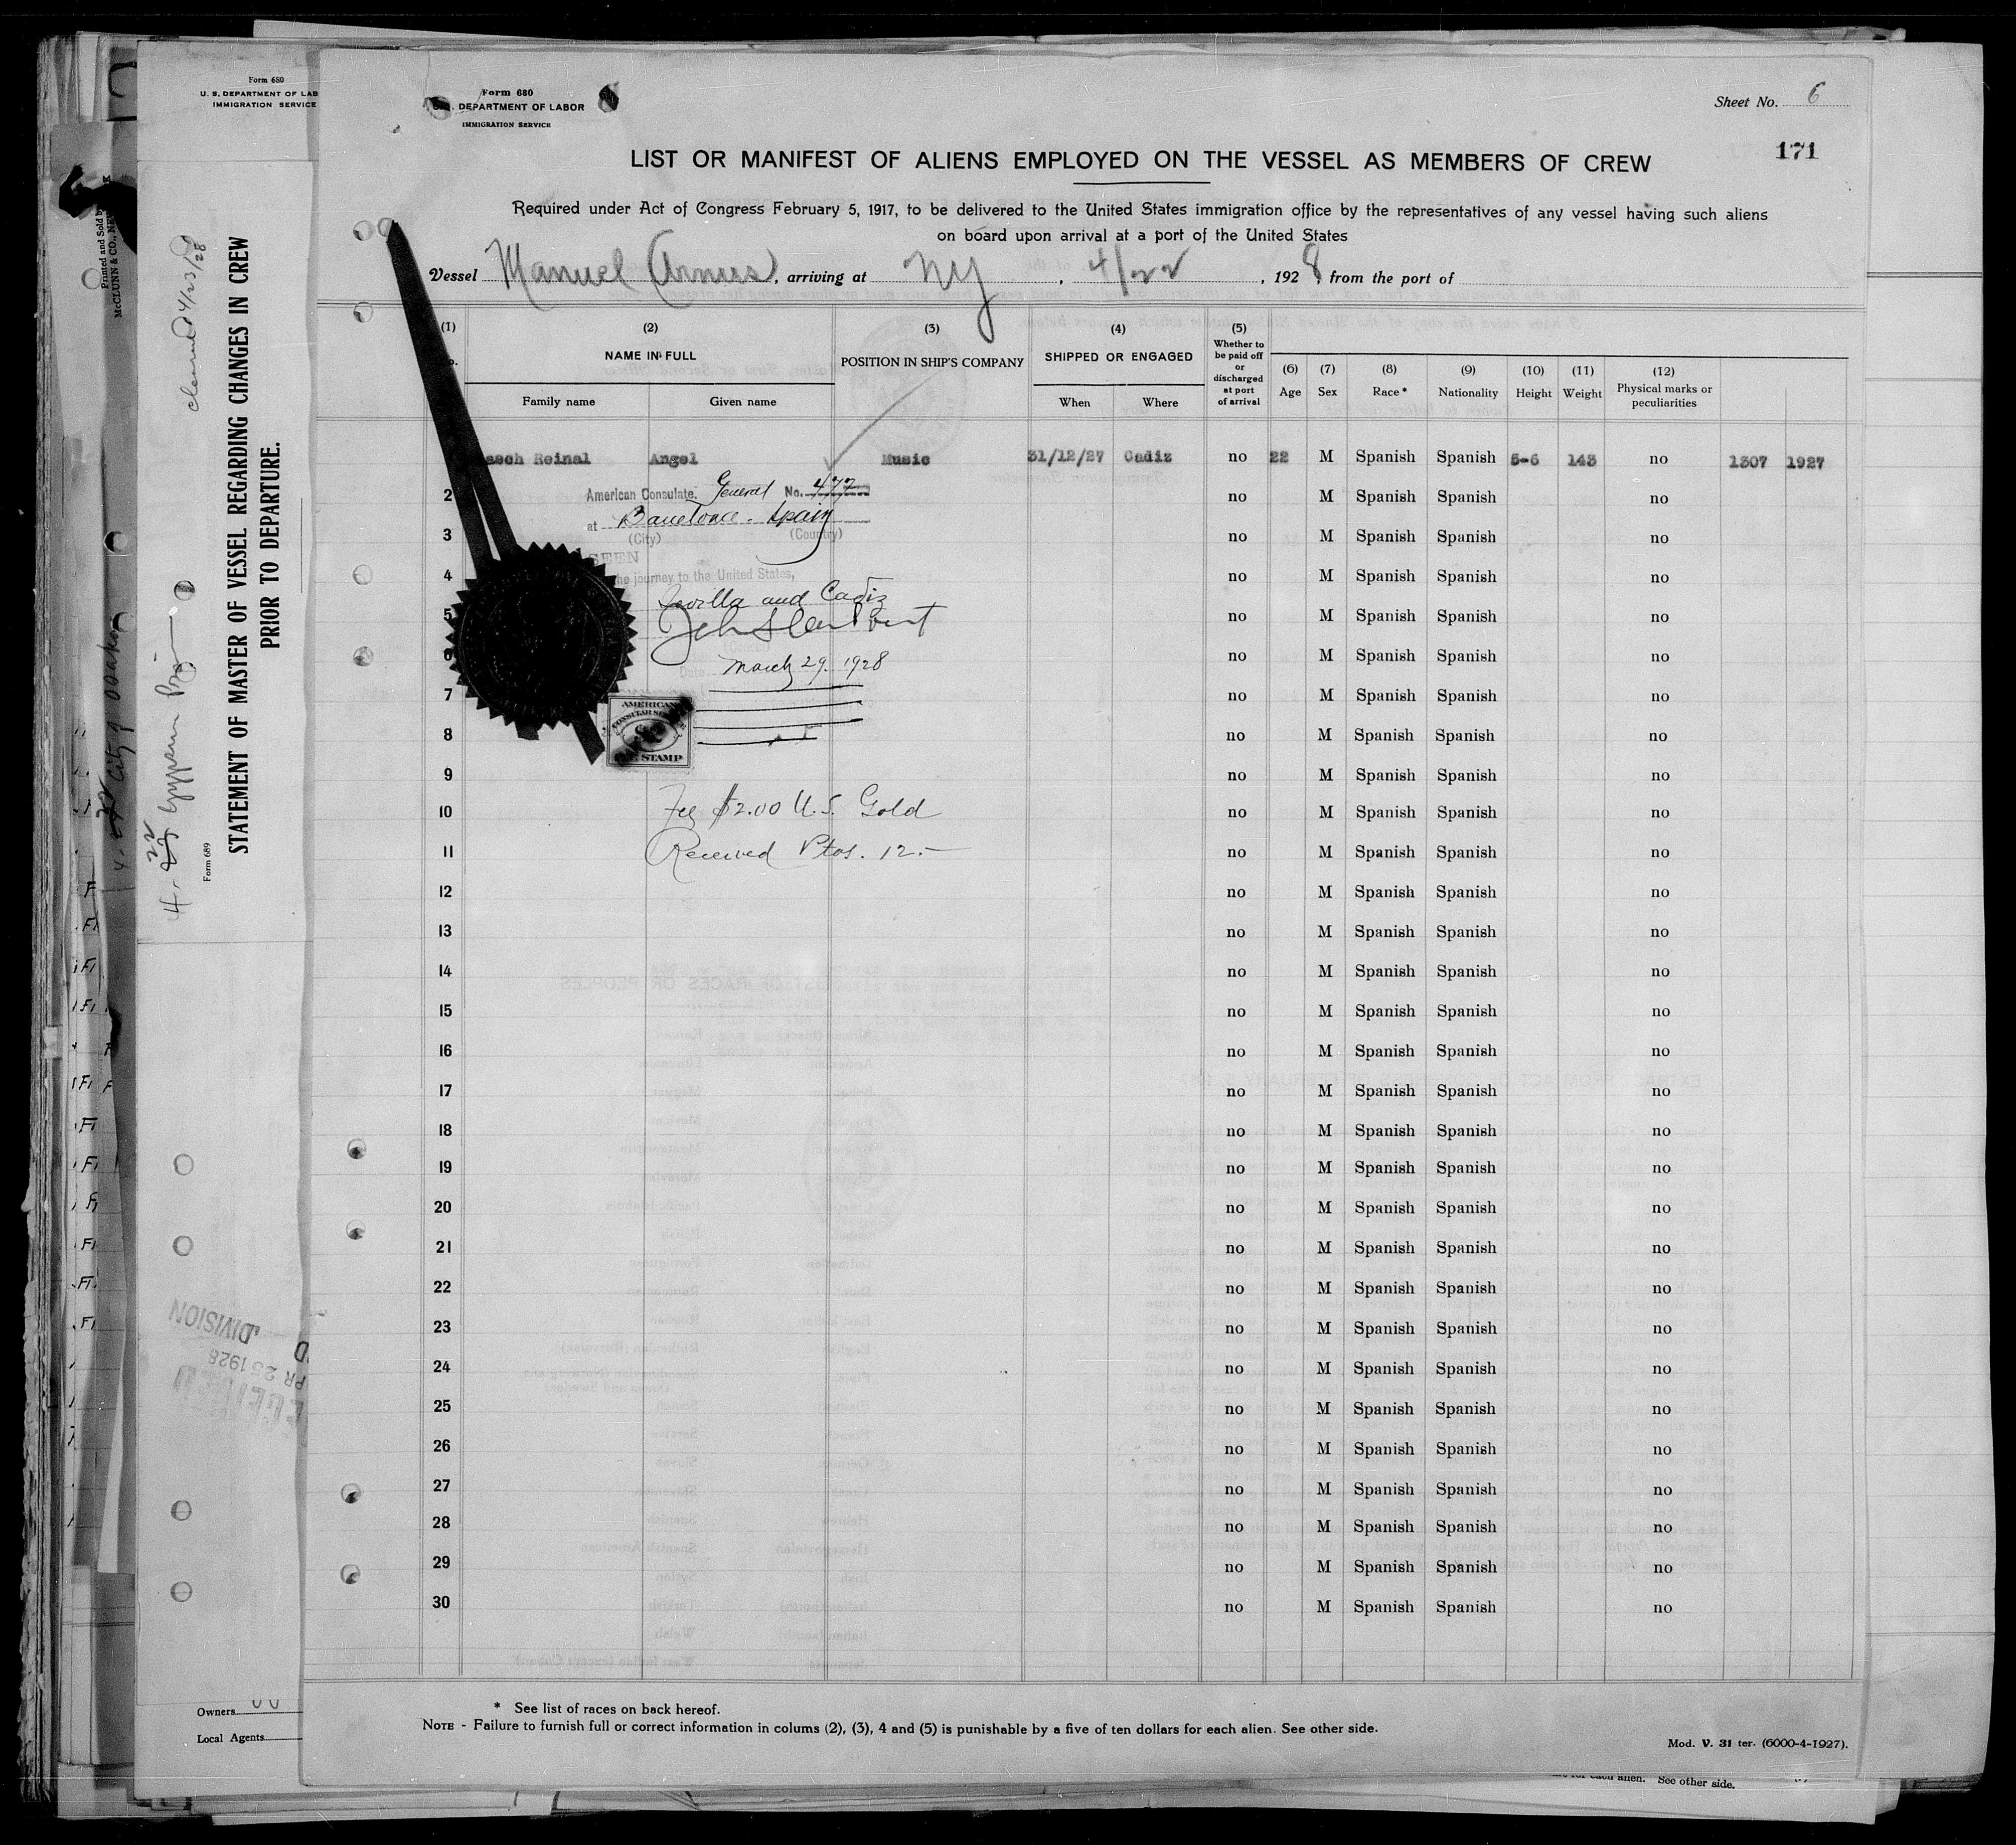 Form 680
U. S. DEPARTMENT OF LAB
IMMIGRATION SERVICE
Form 680
DEPARTMENT OF LABOR
IMMIGRATION SERVICE
Sheet No. 6
171
LIST OR MANIFEST OF ALIENS EMPLOYED ON THE VESSEL AS MEMBERS OF CREW
Required under Act of Congress February 5, 1917, to be delivered to the United States immigration office by the representatives of any vessel having such aliens
on board upon arrival at a port of the United States
Vessel Manuel Arnus, arriving at NY, 4/22, 1928 from the port of
(1) (2) NAME IN FULL Family name Given name
(3) POSITION IN SHIP'S COMPANY
(4) SHIPPED OR ENGAGED When Where
(5) Whether to be paid off or discharged at port of arrival
(6) Age (7) Sex (8) Race * (9) Nationality (10) Height (11) Weight (12) Physical marks or peculiarities
Reinal Angel Music 31/12/27 Cadiz no 22 M Spanish Spanish 5-6 143 no 1307 1927
2 no M Spanish Spanish no
3 no M Spanish Spanish no
4 no M Spanish Spanish no
5 no M Spanish Spanish no
6 no M Spanish Spanish no
7 no M Spanish Spanish no
8 no M Spanish Spanish no
9 no M Spanish Spanish no
10 no M Spanish Spanish no
11 no M Spanish Spanish no
12 no M Spanish Spanish no
13 no M Spanish Spanish no
14 no M Spanish Spanish no
15 no M Spanish Spanish no
16 no M Spanish Spanish no
17 no M Spanish Spanish no
18 no M Spanish Spanish no
19 no M Spanish Spanish no
20 no M Spanish Spanish no
21 no M Spanish Spanish no
22 no M Spanish Spanish no
23 no M Spanish Spanish no
24 no M Spanish Spanish no
25 no M Spanish Spanish no
26 no M Spanish Spanish no
27 no M Spanish Spanish no
28 no M Spanish Spanish no
29 no M Spanish Spanish no
30 no M Spanish Spanish no
American Consulate. General No. 477
at Barcelona. Spain
(City) (Country)
SEEN
the journey to the United States,
Sevilla and Cadiz
Date March 29. 1928
AMERICAN
CONSULAR SERVICE
FEE STAMP
Fee $2.00 U.S. Gold
Received Ptas. 12.—
* See list of races on back hereof.
NOTE - Failure to furnish full or correct information in colums (2), (3), 4 and (5) is punishable by a five of ten dollars for each alien. See other side.
Mod. V. 31 ter. (6000-4-1927).
each alien. See other side.
Form 689
STATEMENT OF MASTER OF VESSEL REGARDING CHANGES IN CREW
PRIOR TO DEPARTURE.
cleared 4/23/28
Printed and Sold by
McCLUNN & CO., NEW
City of Osaka
DIVISION
PR 25 1928
Owners
Local Agents